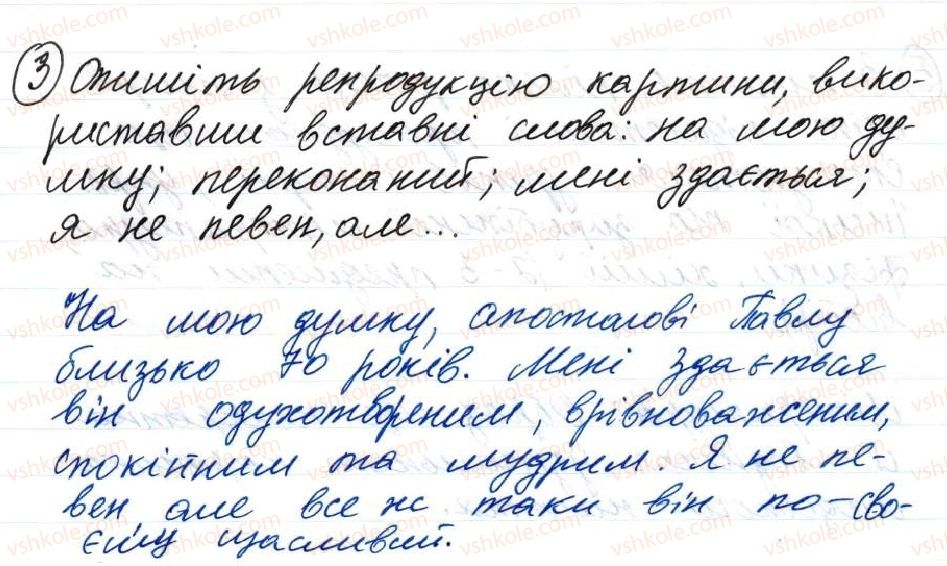 ③ Опишіть репродукцію картини, вико-
риставши вставні слова: на мою ду-
мку; переконаний; мені здається;
я не певен, але...
На мою думку, апостолові Павлу
близько 70 років. Мені здається
він одухотвореним, врівноваженим,
спокійним та мудрим. Я не пе-
вен але все ж таки він по-сво-
єму щасливий.